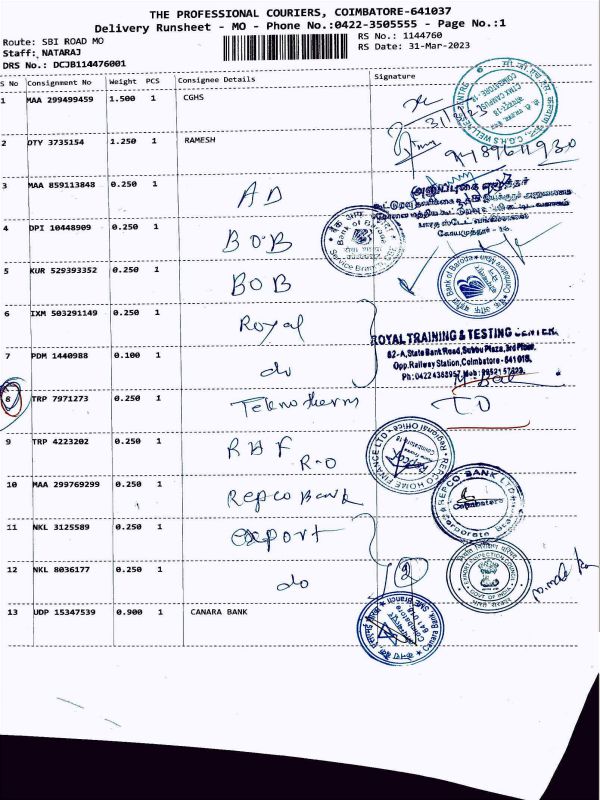 THE PROFESSIONAL COURIERS, COIMBATORE-641037
Delivery Runsheet - MO - Phone No.:0422-3505555 - Page No.:1
Route: SBI ROAD MO
RS No.: 1144760
Staff: NATARAJ
RS Date: 31-Mar-2023
DRS No.: DCJB114476001
S No Consignment No Weight PCS Consignee Details Signature
1 MAA 299499459 1.500 1 CGHS
2 DTY 3735154 1.250 1 RAMESH
3 MAA 859113848 0.250 1 AD
4 DPI 10448909 0.250 1 BOB
5 KUR 529393352 0.250 1 BOB
6 IXM 503291149 0.250 1 Royal
7 PDM 1440988 0.100 1 do
ROYAL TRAINING & TESTING CENTRE
62-A, State Bank Road, Subbu Plaza, 3rd Floor,
Opp. Railway Station, Coimbatore - 641018.
8 TRP 7971273 0.250 1 Teknotherm TD
9 TRP 4223202 0.250 1 RHF R-O
REPCO HOME FINANCE LTD
Regional Office
10 MAA 299769299 0.250 1 Repco Bank
REPCO BANK LTD
Coimbatore
11 NKL 3125589 0.250 1 export
12 NKL 8036177 0.250 1 do
2
EXPORT INSPECTION COUNCIL
13 UDP 15347539 0.900 1 CANARA BANK
Canara Bank, SME Branch
Coimbatore
Bank of Baroda
Service Branch
Bank of Baroda